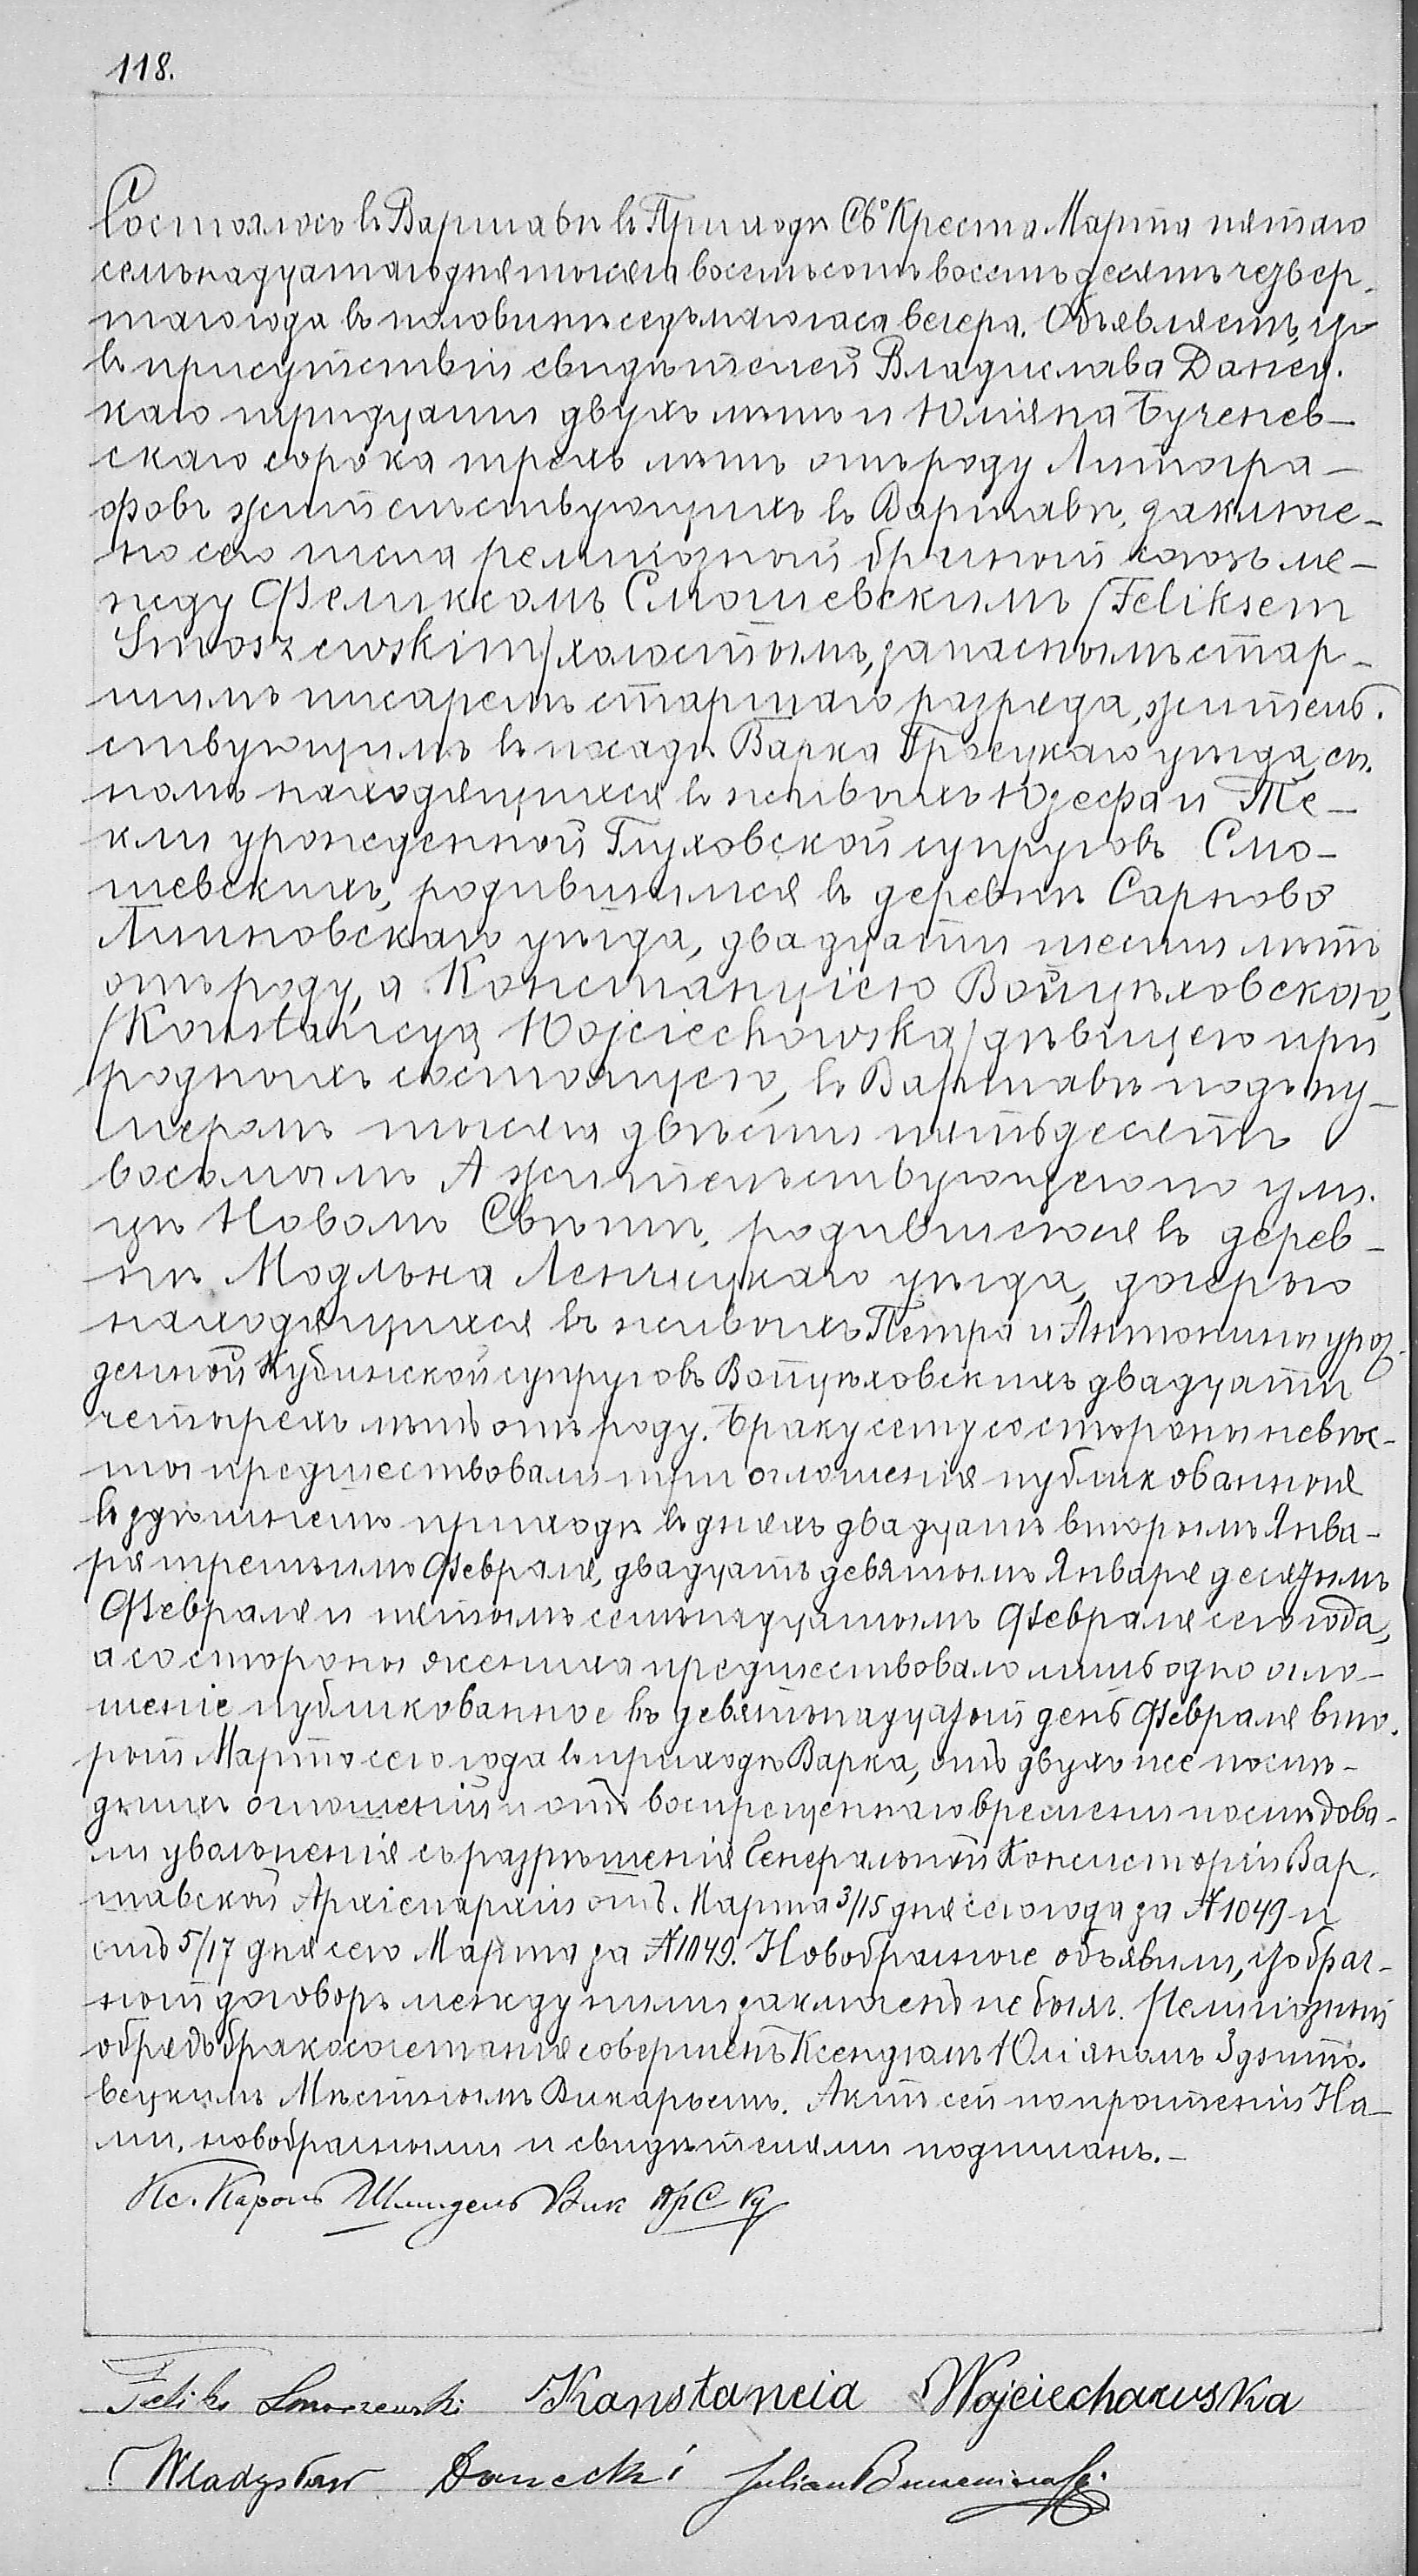 118.
Состоялось въ Варшавѣ въ Приходѣ Св° Креста Марта пятаго
семьнадцатаго дня тысяча восемьсотъ восемьдесятъ четвер-
таго года въ половинѣ седьмаго часа вечера. Объявляемъ, что
въ присутствіи свидѣтелей Владислава Донец-
каго тридцати двухъ лѣтъ и Юліяна Бученев-
скаго сорока трехъ лѣтъ отъ роду Литогра-
фовъ жительствующихъ въ Варшавѣ, заключе-
но сего числа религіозный брачный союзъ ме-
жду Феликсомъ Смошевскимъ /Feliksem
Smoszewskim/ холостымъ, запаснымъ стар-
шимъ писаремъ старшаго разряда, житель-
ствующимъ въ посадѣ Варка Гроецкаго уѣзда, сы-
номъ находящихся въ живыхъ Юзефа и Те-
кли урожденной Глуховской супруговъ Смо-
шевскихъ, родившимся въ деревнѣ Сарново
Липновскаго уѣзда, двадцати шести лѣтъ
отъ роду, а Констанціею Войцѣховскою,
/Konstancyą Wojciechowską/ дѣвицею при
родныхъ состоящею, въ Варшавѣ подъ ну-
меромъ тысяча двѣсти пятьдесятъ
восьмымъ А жительствующею по ули-
цѣ Новомъ Свѣтѣ, родившеюся въ дерев-
нѣ Модльна Ленчицкаго уѣзда, дочерью
находящихся въ живыхъ Петра и Антонины урож-
денной Кубинской супруговъ Войцѣховскихъ двадцати
четырехъ лѣтъ отъ роду. Браку сему со стороны невѣс-
ты предшествовали три оглошенія публикованныя
въ здѣшнемъ приходѣ въ дняхъ двадцать вторымъ Янва-
ря третьимъ Февраля, двадцать девятымъ Января десятымъ
Февраля и пятымъ семьнадцатымъ Февраля сего года,
а со стороны жениха предшествовало лишь одно огло-
шеніе публикованное въ девятьнадцатый день Февраля вто-
рой Марта сего года въ приходѣ Варка, отъ двухъ же послѣ-
днихъ оглошеній и отъ воспрещеннаго времени послѣдова-
ли увольненія съ разрѣшенія Генеральной Консисторіи Вар-
шавской Архіепархіи отъ Марта 3/15 дня сего года за № 1049 и
отъ 5/17 дня сего Марта за № 1049. Новобрачные объявили, что брач-
ный договоръ между ними заключенъ не былъ. Религіозный
обрядъ бракосочетанія совершенъ Ксендзомъ Юліяномъ Здзито-
вецкимъ Мѣстнымъ Викаріемъ. Актъ сей по прочтеніи На-
ми, новобрачными и свидѣтелями подписанъ.-
Кс. Кароль Шмидель Вик
Feliks Smoszewski Konstancia Wojciechowska
Władysław Donecki Julian